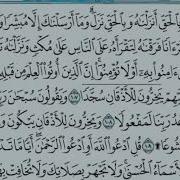 وَبِٱلۡحَقِّ أَنزَلۡنَٰهُ وَبِٱلۡحَقِّ نَزَلَۗ وَمَآ أَرۡسَلۡنَٰكَ إِلَّا مُبَشِّرٗا
فَرَقۡنَٰهُ لِتَقۡرَأَهُۥ عَلَى ٱلنَّاسِ عَلَىٰ مُكۡثٖ وَنَزَّلۡنَٰهُ
ءَامِنُواْ بِهِۦٓ أَوۡ لَا تُؤۡمِنُوٓاْۚ إِنَّ ٱلَّذِينَ أُوتُواْ ٱلۡعِلۡمَ مِن
يَخِرُّونَۤ لِلۡأَذۡقَانِۤ سُجَّدٗاۤ ١٠٧ وَيَقُولُونَ سُبۡحَٰنَ
رَبِّنَا لَمَفۡعُولٗا ١٠٨ وَيَخِرُّونَ لِلۡأَذۡقَانِ يَبۡكُونَ
١٠٩ قُلِ ٱدۡعُواْ ٱللَّهَ أَوِ ٱدۡعُواْ ٱلرَّحۡمَٰنَۖ أَيّٗا
ٱلۡحُسۡنَىٰۚ وَلَا تَجۡهَرۡ بِصَلَاتِكَ وَلَا تُخَافِتۡ